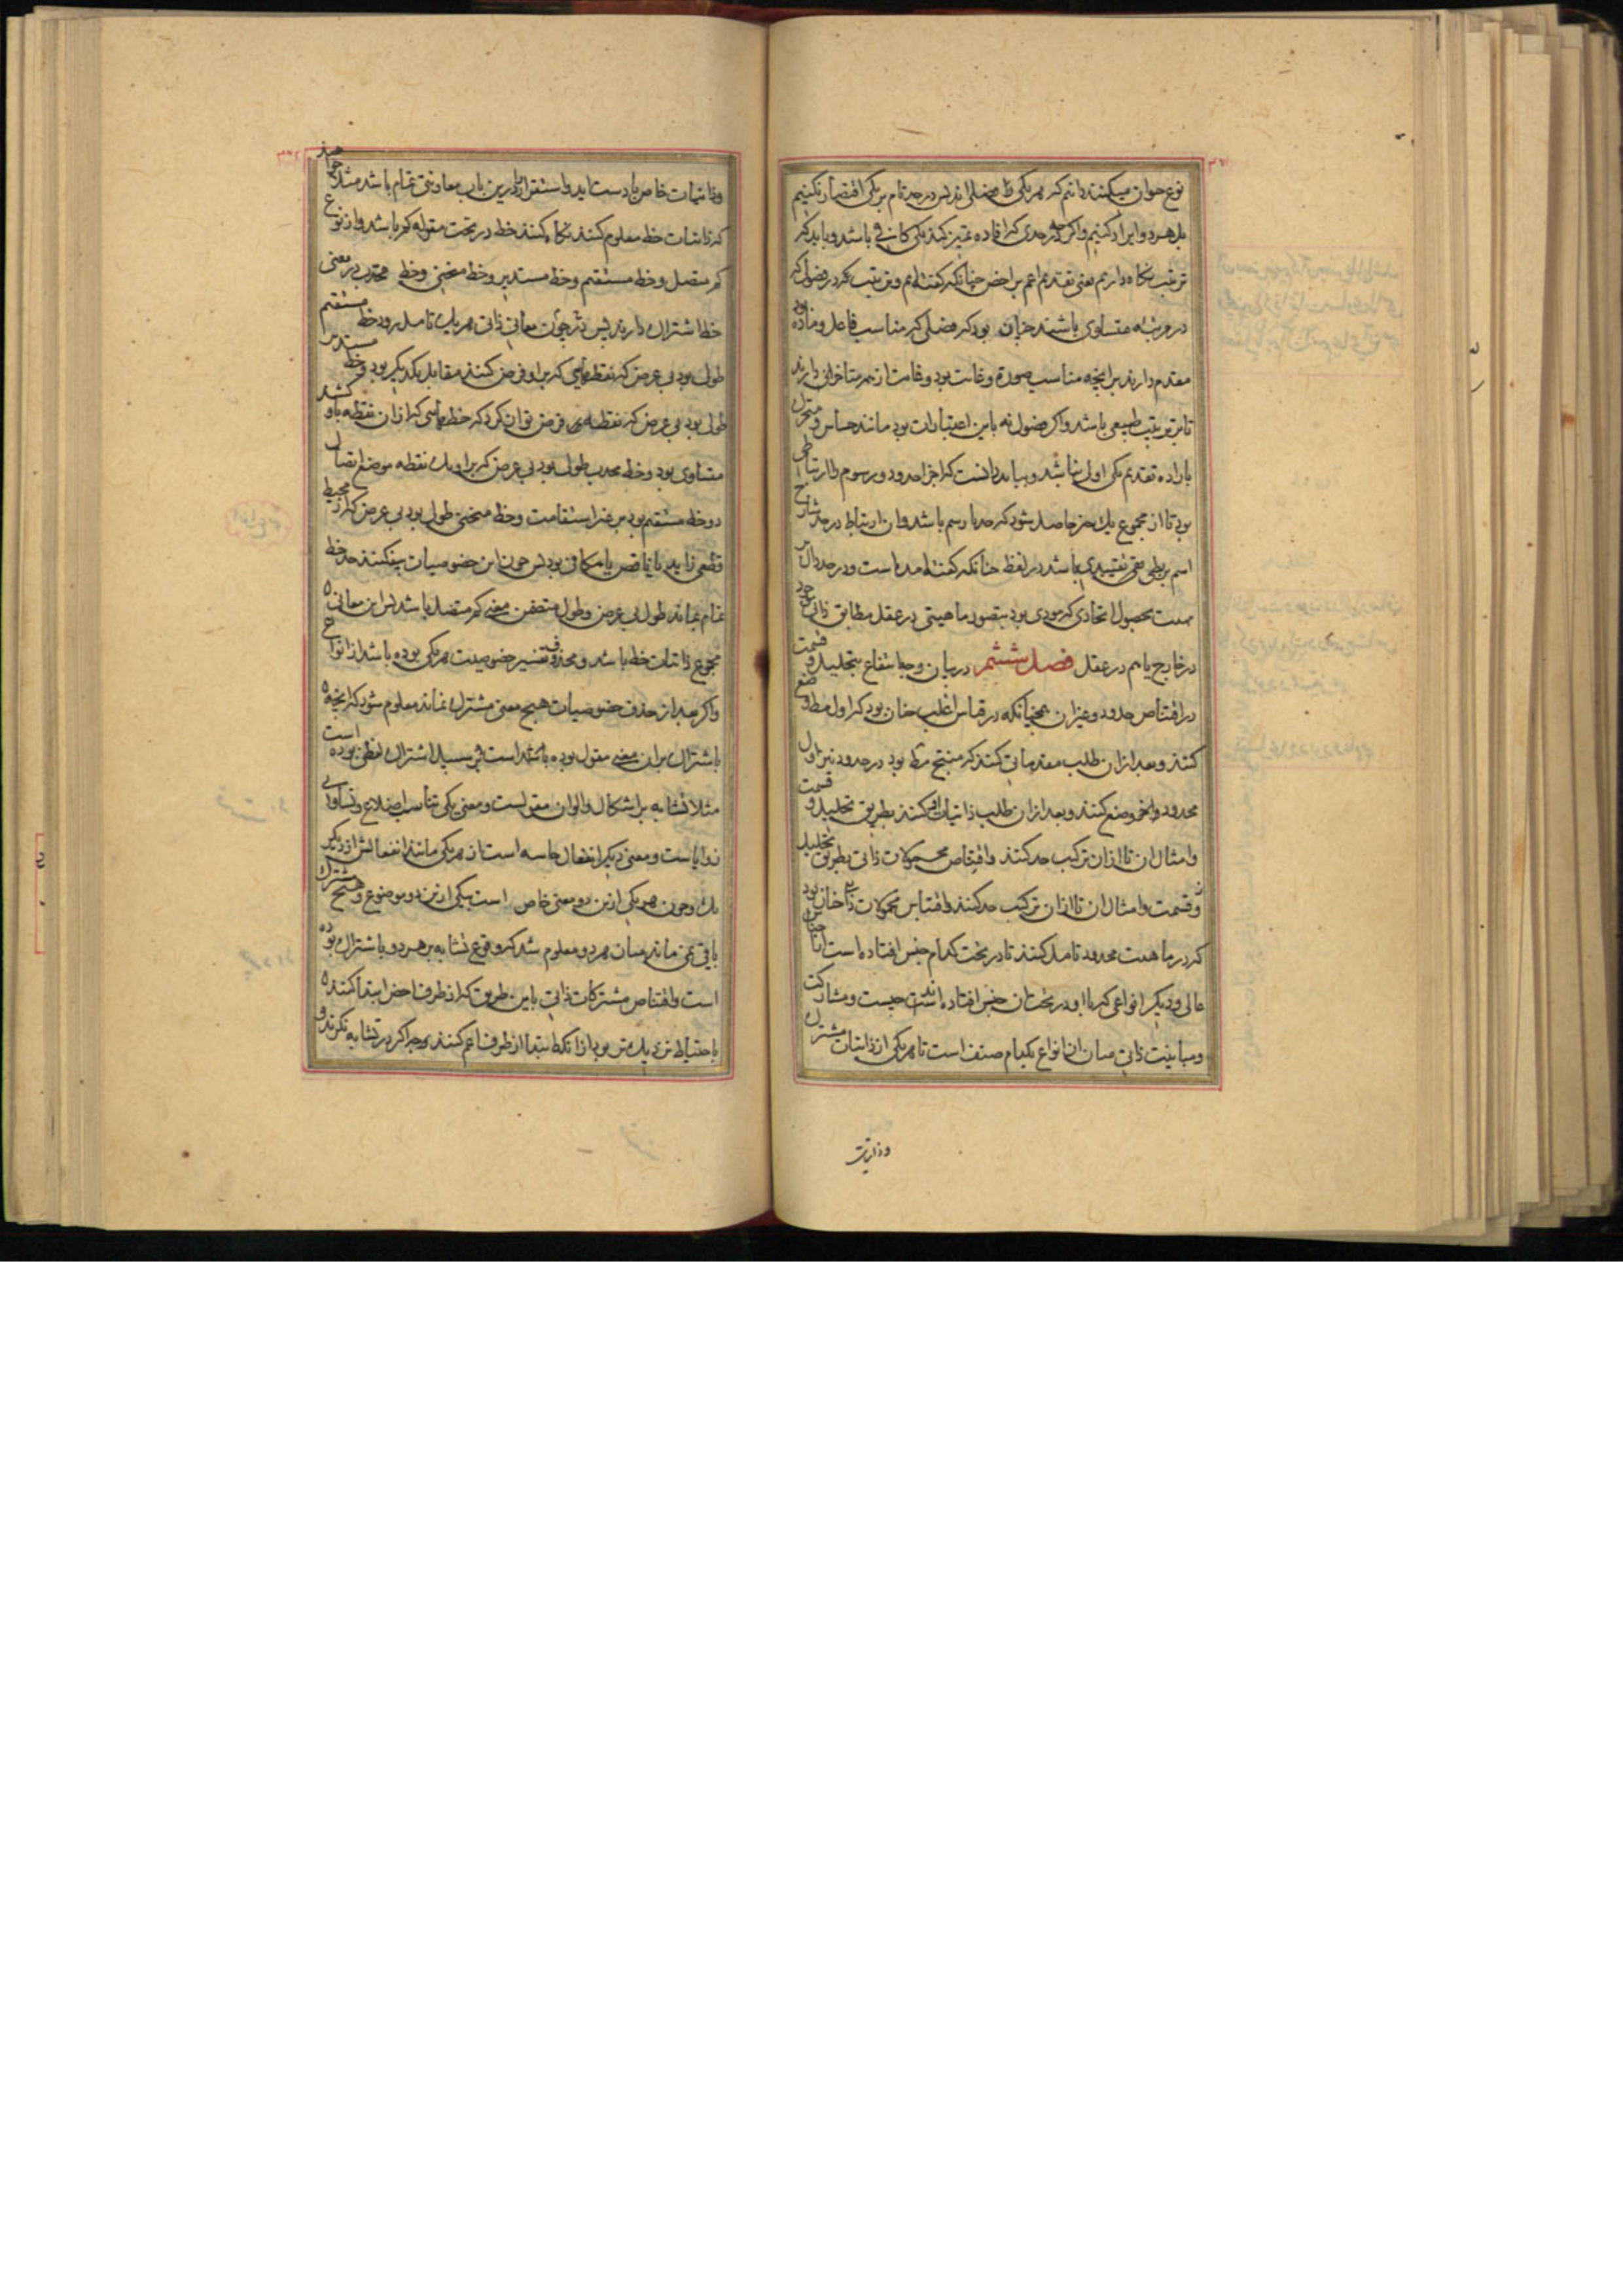 نوع حیوان میکنند دانیم که هر یکی فصلی‌اند پس در حد تام بر یکی اقتصار نکنیم
بل هر دو ایراد کنیم و اگر حدی که افاده تمیز کند یکی کافی باشد و باید که
ترتیب نگاه داریم یعنی تقدیم اعم بر اخص چنانکه گفته‌ایم و ترتیب در فصول که
در مرتبه متساوی باشند چنان بود که فصلی که مناسب فاعل و ماده بود
مقدم دارند بر آنچه مناسب صورة و غایت بود و غایت از همه متأخر دارند
تا ترتیب طبیعی باشد و اگر فصول نه باین اعتبارات بود مانند حساس و متحرک
باراده تقدیم یکی اولی نباشد و بباید دانست که اجزاء حدود و رسوم را ارتباطی
بود تا از مجموع یک چیز حاصل شود که حد یا رسم باشد و آن ارتباط در حد شارح
اسم بربطی تقییدی باشد در لفظ چنانکه گفته آمده است و در حد دال بر
مهیت بحصول اتحادی که مودی بود بتصور ماهیتی در عقل مطابق ذاتی موجود
در خارج یا هم در عقل فصل ششم در بیان وجه انتفاع بتحلیل و قسمت
در اقتناص حدود و غیر آن همچنانکه در قیاس اغلب چنان بود که اول مطلوب وضع
کنند و بعد ازان طلب مقدماتی کنند که منتج مط بود در حدود نیز اول
محدود را وضع کنند و بعد ازان طلب ذاتیات او کنند بطریق تحلیل و قسمت
و امثال آن تا ازان ترکیب حد کنند و اقتناص محمولات ذاتی بطریق تحلیل
و قسمت و امثال آن تا ازان ترکیب حد کنند و اقتناص محمولات ذاتی چنان بود
که در ماهیت محدود تامل کنند تا در تحت کدام جنس افتاده است از اجناس
عالی و دیگر انواعی که با او در تحت آن جنس افتاده‌اند چیست و مشارکت
و مباینت ذاتی میان آن انواع بکدام صنف است تا هر یکی از ذاتیات مشترک
و ذاتیات
و ذاتیات خاص با دست آید و استقرا را درین باب معاونتی تمام باشد مثلا چون خواهند
که ذاتیات خط معلوم کنند نگاه کنند خط در تحت مقوله کم باشد و از نوع
کم متصل و خط مستقیم و خط مستدیر و خط منحنی و خط محدب در معنی
خط اشتراک دارند پس چون در معانی ذاتی هر یک تامل رود خط مستقیم
طولی بود بی عرض که نقطه‌هایی که برو فرض کنند مقابل یکدیگر بود و خط مستدیر
طولی بود بی عرض که نقطه فرض توان کرد که خطهایی که ازان نقطه باو کشند
متساوی بود و خط محدب طولی بود بی عرض که برو یک نقطه موضع اتصال
دو خط مستقیم بود بر غیر استقامت و خط منحنی طولی بود بی عرض که از محیط
قطعی زاید یا ناقص یا مکافی بود پس چون این خصوصیات بیفکنند حد خط
تمام بماند طولی بی عرض و طول متضمن معنی کم متصل باشد پس این معانی
مجموع ذاتیات خط باشد و محذوف تفسیر خصوصیت هر یکی بوده باشد از انواع
و اگر بعد از حذف خصوصیات هیچ معنی مشترک نماند معلوم شود که آنچه
باشتراک بران معنی مقول بوده باشد است بر سبیل اشتراک لفظی بوده است
مثلا تشابه بر اشکال و الوان مقولست و معنی یکی تناسب اضلاع و تساوی
زوایاست و معنی دیگر انفعال حاسه است از هر یکی مانند انفعالش از دیگر
یک و چون هر یکی ازین دو معنی خاص است بیکی ازین دو موضوع و هیچ مشترک
باقی نمی ماند میان هر دو معلوم شد که وقوع تشابه بر هر دو باشتراک بوده
است و اقتناص مشترکات ذاتی باین طریق که از طرف اخص ابتدا کنند
باحتیاط نزدیک تر بود ازانکه ابتدا از طرف اعم کنند چه اگر در تشابه نگرند و